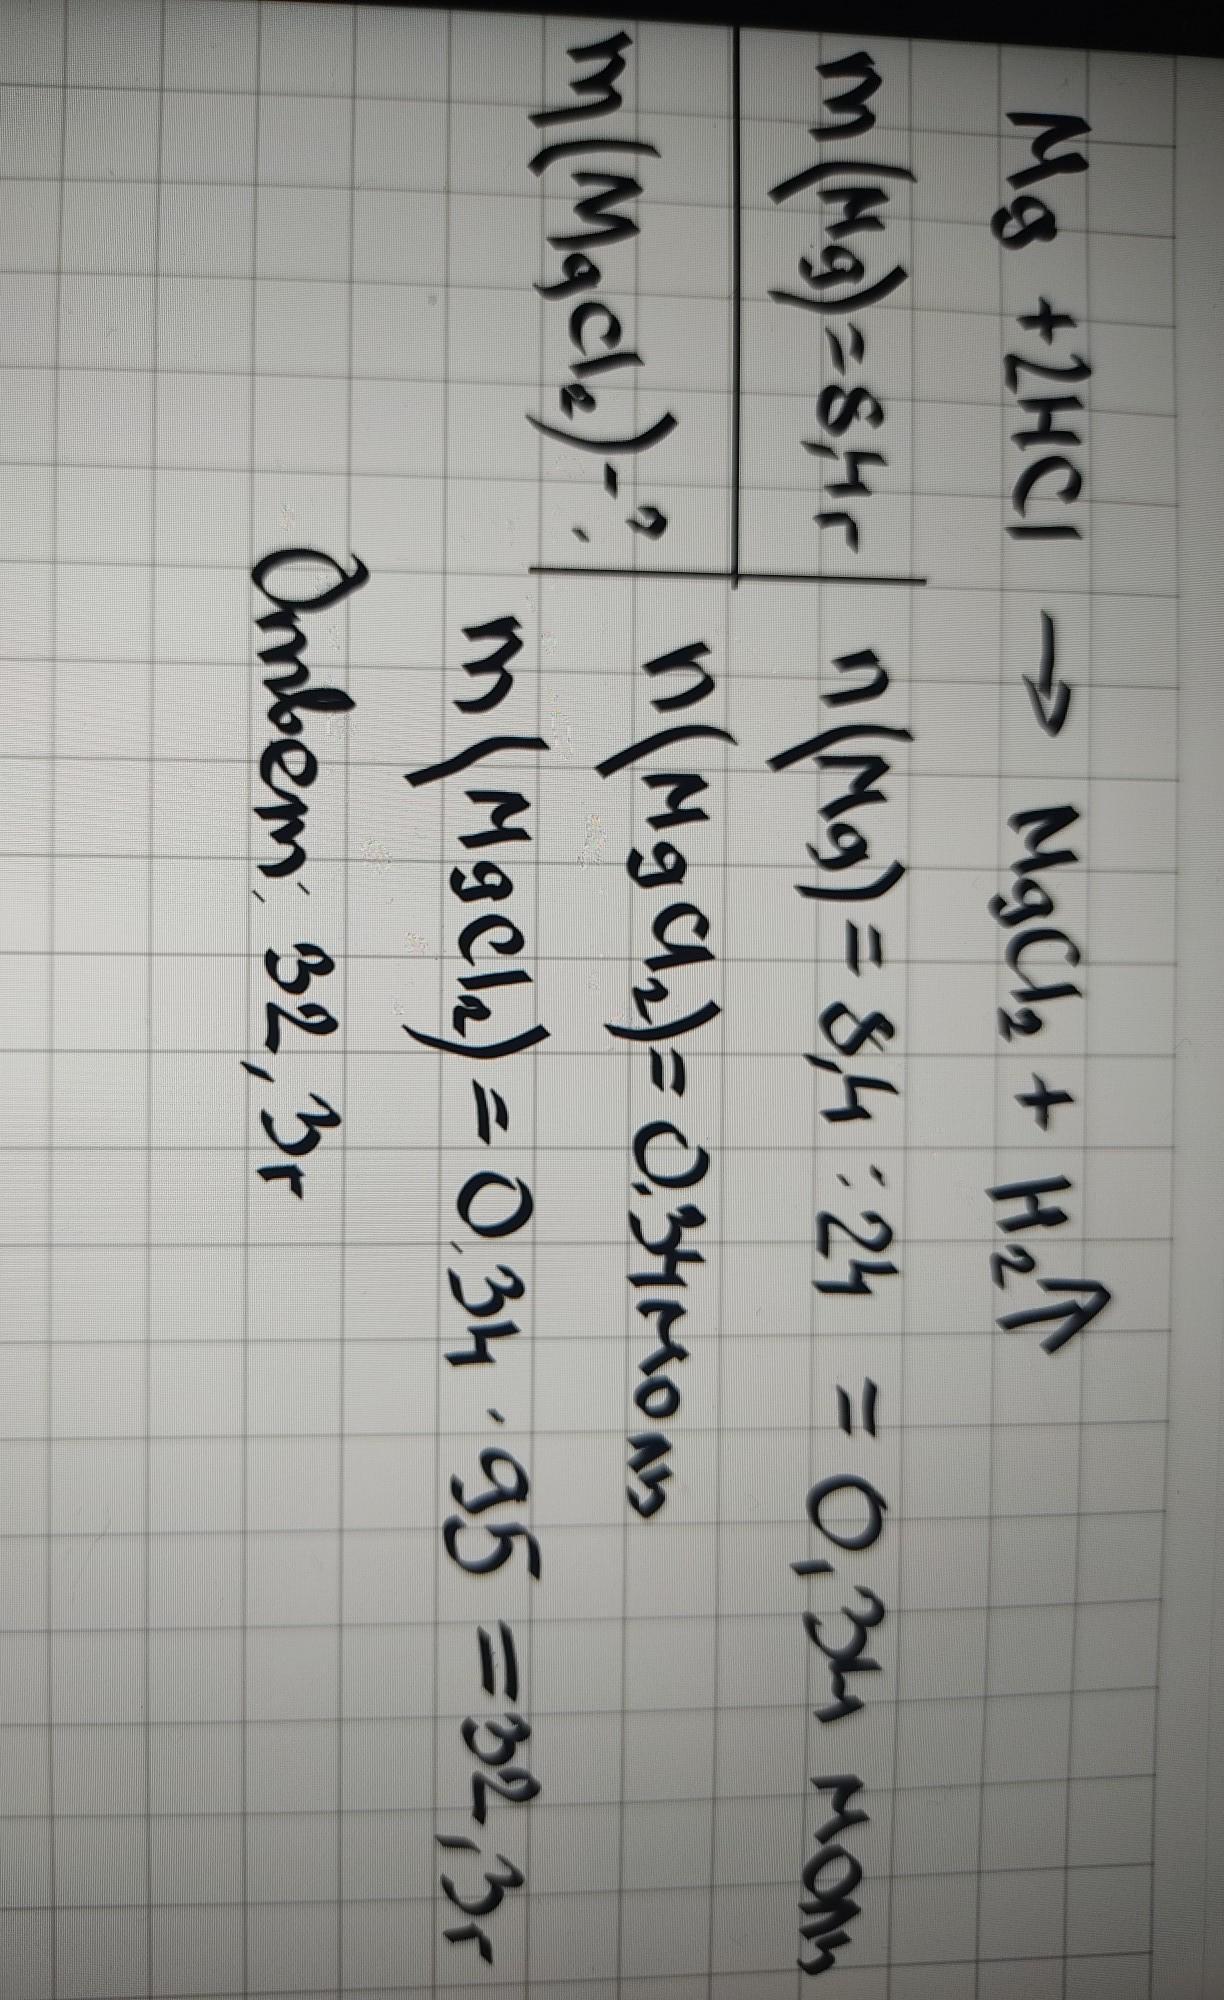 Mg + 2HCl → MgCl₂ + H₂↑
m(Mg)=8,4г
n(Mg) = 8,4 : 24 = 0,34 моль
m(MgCl₂)-?
n(MgCl₂)=0,34моль
m(MgCl₂) = 0,34 · 95 = 32,3г
Ответ: 32,3г